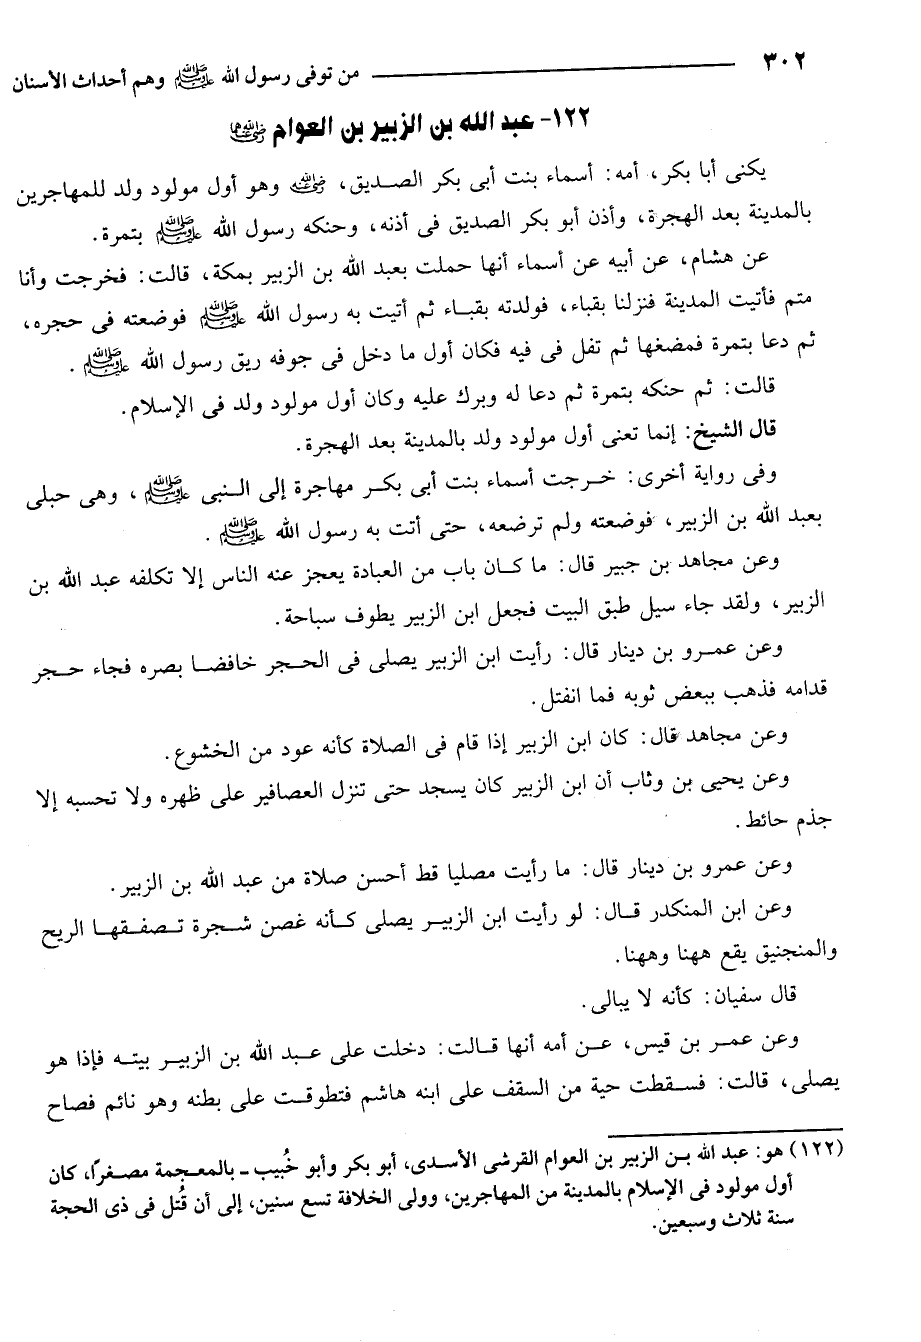 ٣٠٢ من توفى رسول الله ﷺ وهم أحداث الأسنان
١٢٢- عبد الله بن الزبير بن العوام رضي الله عنهما
يكنى أبا بكر، أمه: أسماء بنت أبى بكر الصديق، رضي الله عنه وهو أول مولود ولد للمهاجرين
بالمدينة بعد الهجرة، وأذن أبو بكر الصديق فى أذنه، وحنكه رسول الله ﷺ بتمرة.
عن هشام، عن أبيه عن أسماء أنها حملت بعبد الله بن الزبير بمكة، قالت: فخرجت وأنا
متم فأتيت المدينة فنزلنا بقباء، فولدته بقباء ثم أتيت به رسول الله ﷺ فوضعته فى حجره،
ثم دعا بتمرة فمضغها ثم تفل فى فيه فكان أول ما دخل فى جوفه ريق رسول الله ﷺ.
قالت: ثم حنكه بتمرة ثم دعا له وبرك عليه وكان أول مولود ولد فى الإسلام.
قال الشيخ: إنما تعنى أول مولود ولد بالمدينة بعد الهجرة.
وفى رواية أخرى: خرجت أسماء بنت أبى بكر مهاجرة إلى النبى ﷺ، وهى حبلى
بعبد الله بن الزبير، فوضعته ولم ترضعه، حتى أتت به رسول الله ﷺ.
وعن مجاهد بن جبير قال: ما كان باب من العبادة يعجز عنه الناس إلا تكلفه عبد الله بن
الزبير، ولقد جاء سيل طبق البيت فجعل ابن الزبير يطوف سباحة.
وعن عمرو بن دينار قال: رأيت ابن الزبير يصلى فى الحجر خافضا بصره فجاء حجر
قدامه فذهب ببعض ثوبه فما انفتل.
وعن مجاهد قال: كان ابن الزبير إذا قام فى الصلاة كأنه عود من الخشوع.
وعن يحيى بن وثاب أن ابن الزبير كان يسجد حتى تنزل العصافير على ظهره ولا تحسبه إلا
جذم حائط.
وعن عمرو بن دينار قال: ما رأيت مصليا قط أحسن صلاة من عبد الله بن الزبير.
وعن ابن المنكدر قال: لو رأيت ابن الزبير يصلى كأنه غصن شجرة تصفقها الريح
والمنجنيق يقع ههنا وههنا.
قال سفيان: كأنه لا يبالى.
وعن عمر بن قيس، عن أمه أنها قالت: دخلت على عبد الله بن الزبير بيته فإذا هو
يصلى، قالت: فسقطت حية من السقف على ابنه هاشم فتطوقت على بطنه وهو نائم فصاح
(١٢٢) هو: عبد الله بن الزبير بن العوام القرشى الأسدى، أبو بكر وأبو خُبيب - بالمعجمة مصغرًا، كان
أول مولود فى الإسلام بالمدينة من المهاجرين، وولى الخلافة تسع سنين، إلى أن قُتل فى ذى الحجة
سنة ثلاث وسبعين.